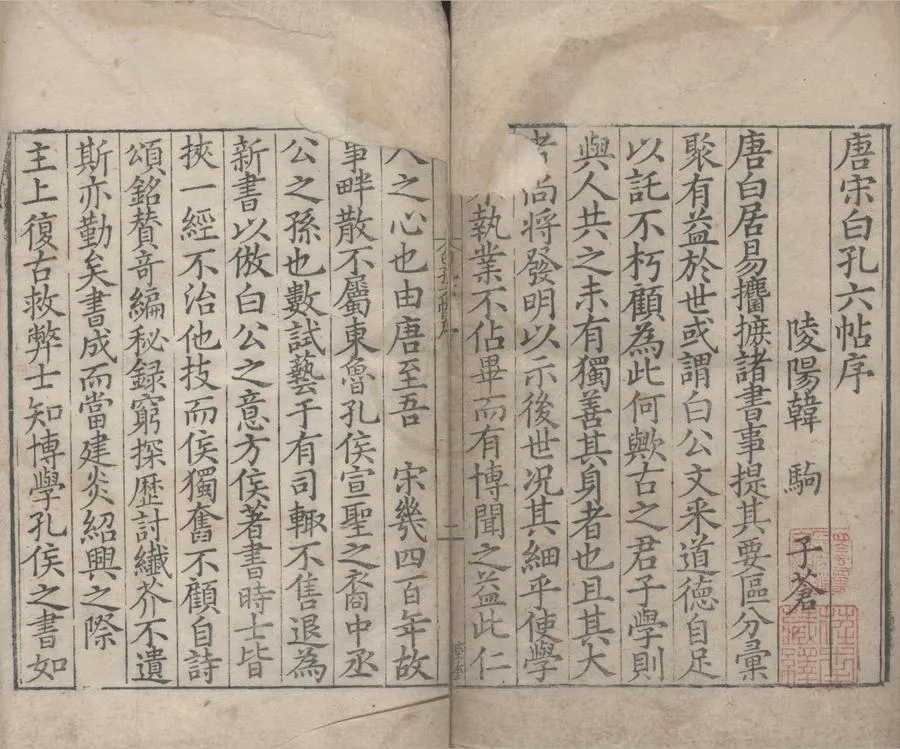 唐宋白孔六帖序
陵陽韓 駒 子蒼
唐白居易攟摭諸書事提其要區分彙
聚有益於世或謂白公文采道德自足
以託不朽顧為此何歟古之君子學則
與人共之未有獨善其身者也且其大
者尚將發明以示後世况其細乎使學
執業不佔畢而有博聞之益此仁
人之心也由唐至吾 宋幾四百年故
事畔散不屬東魯孔侯宣聖之裔中丞
公之孫也數試藝于有司輙不售退為
新書以倣白公之意方侯著書時士皆
挾一經不治他技而侯獨奮不顧自詩
頌銘賛奇編秘録窮探歷討纖芥不遺
斯亦勤矣書成而當建炎紹興之際
主上復古救弊士知博學孔侯之書如